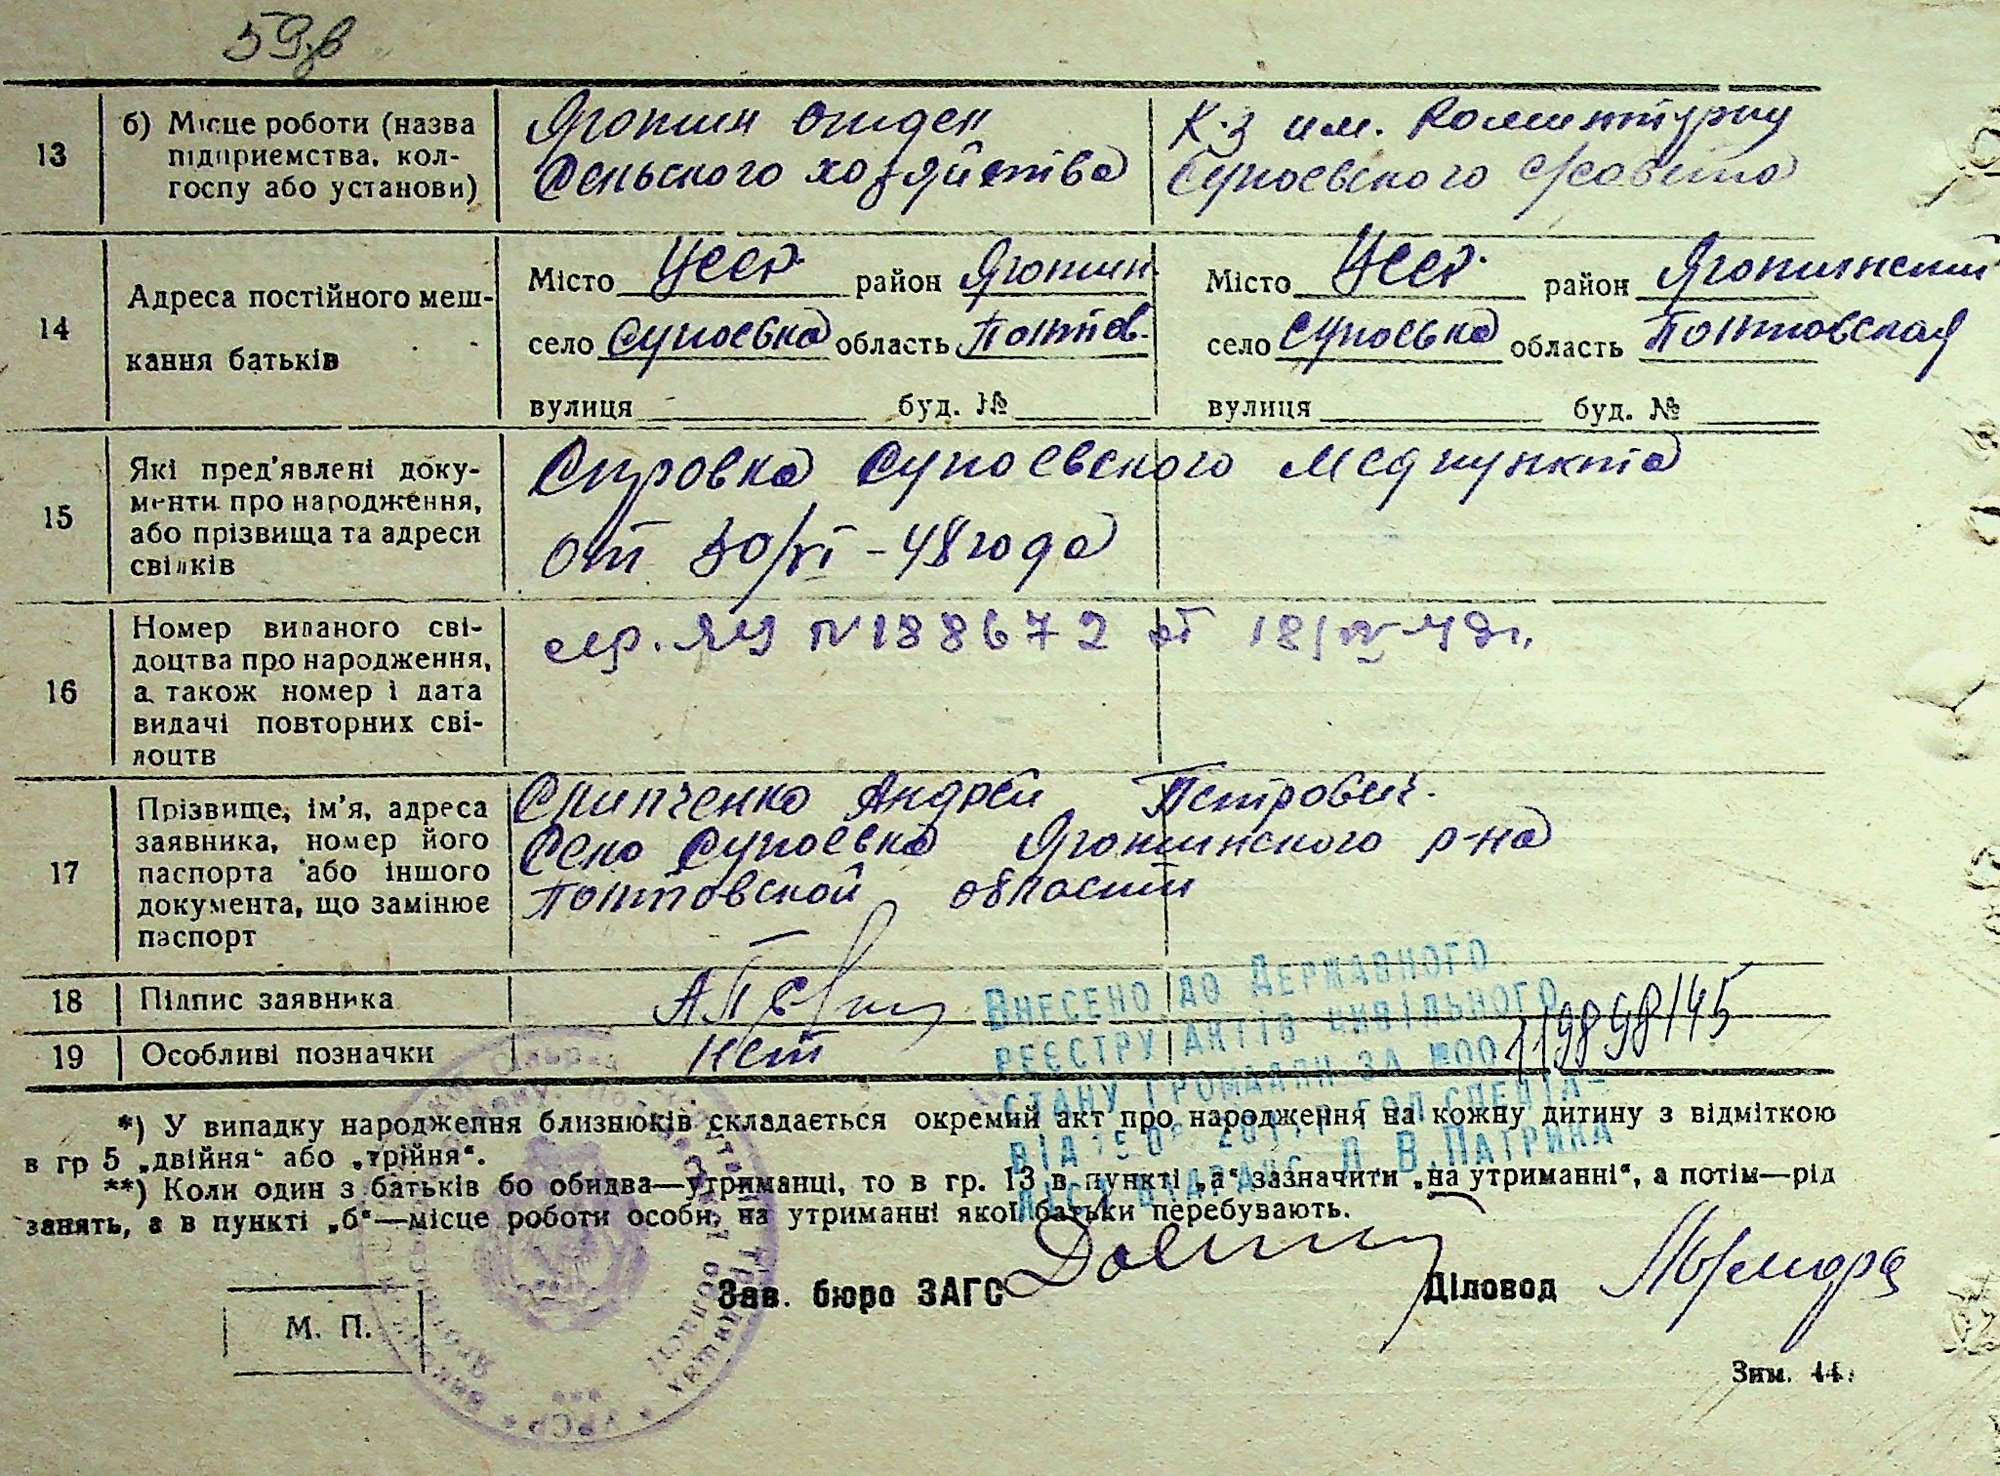 59
13
б) Місце роботи (назва підприємства, колгоспу або установи)
Яготин отдел
Сельского хозяйства
К-з им. Коминтерну
Супоевского с/совета
14
Адреса постійного мешкання батьків
Місто УССР. район Яготин.
село Супоевка область Полтав.
вулиця буд. №
Місто УССР. район Яготинский
село Супоевка область Полтовская
вулиця буд. №
15
Які пред'явлені документи про народження, або прізвища та адреси свідків
Спровка Супоевского медпункта
от 30/VI-48 года
16
Номер виданого свідоцтва про народження, а також номер і дата видачі повторних свідоцтв
N 188672 от 18/IV-49г.
17
Прізвище, ім'я, адреса заявника, номер його паспорта або іншого документа, що замінює паспорт
Слипченко Андрей Петрович.
Село Супоевка Яготинского р-на
Полтовской области
18
Підпис заявника
19
Особливі позначки
нет
Внесено до Державного
реєстру актів цивільного
стану громадян за №00119898145
Л.В.Патрика
*) У випадку народження близнюків складається окремий акт про народження на кожну дитину з відміткою
в гр 5 „двійня“ або „трійня“.
**) Коли один з батьків бо обидва—утриманці, то в гр. 13 в пункті „а“ зазначити „на утриманні“, а потім—рід
занять, а в пункті „б“—місце роботи особи, на утриманні якої батьки перебувають.
Зав. бюро ЗАГС
Діловод
М. П.
Зям. 44.